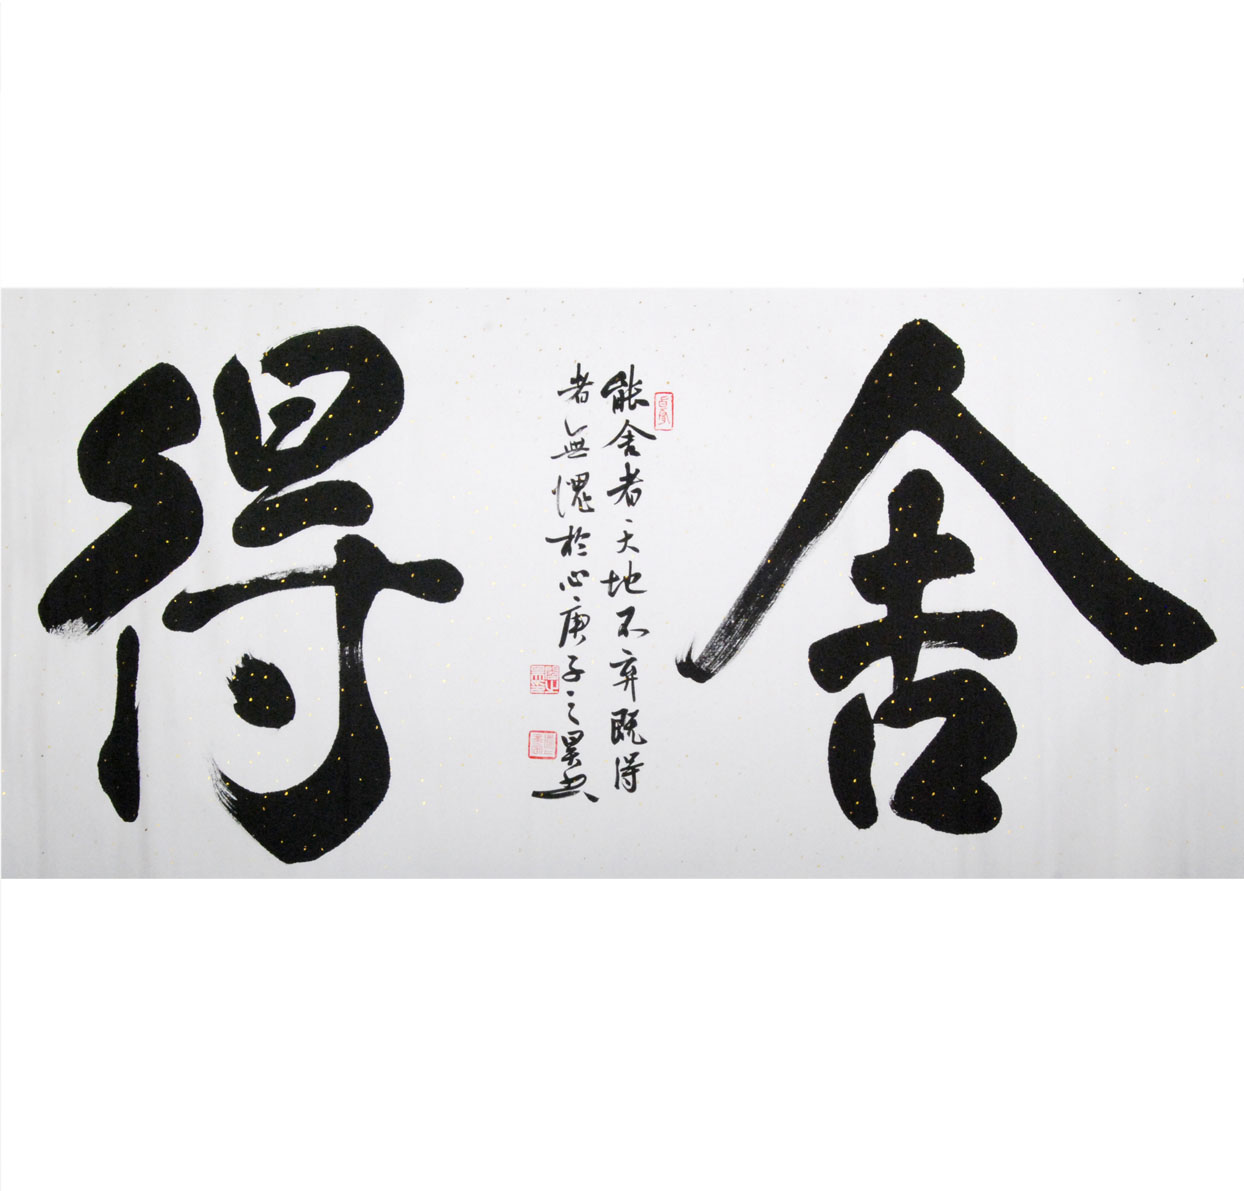 舍
能舍者天地不弃既得
者無愧於心庚子之昊书
得